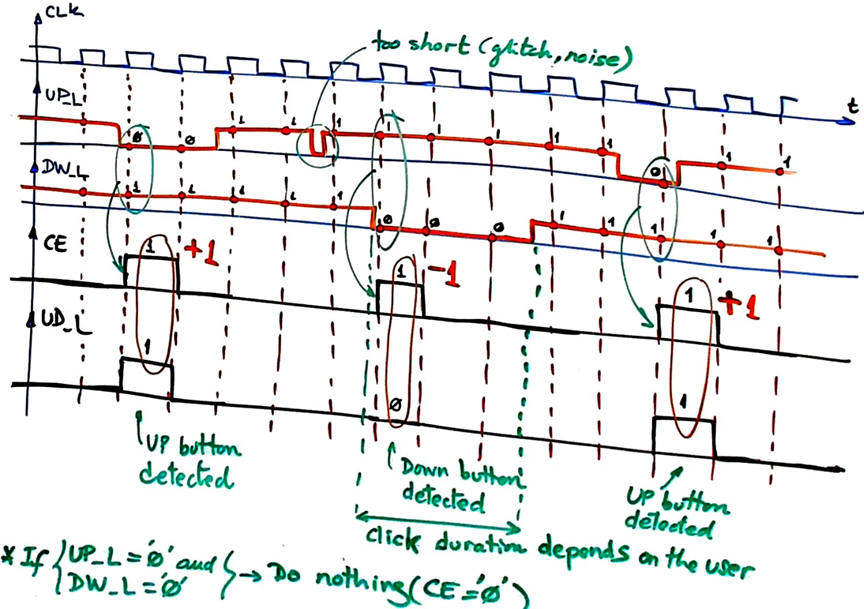 CLK
too short (glitch, noise)
t
UP_L
Ø Ø 1 1 1 1 1 1 1 1 Ø 1 1
DW_L
1 1 1 1 1 Ø Ø Ø 1 1 1 1 1
CE
1 +1
1 -1
1 +1
UD_L
1
Ø
1
UP button
detected
Down button
detected
UP button
detected
click duration depends on the user
* If { UP_L = 'Ø' and } → Do nothing (CE = 'Ø')
DW_L = 'Ø'